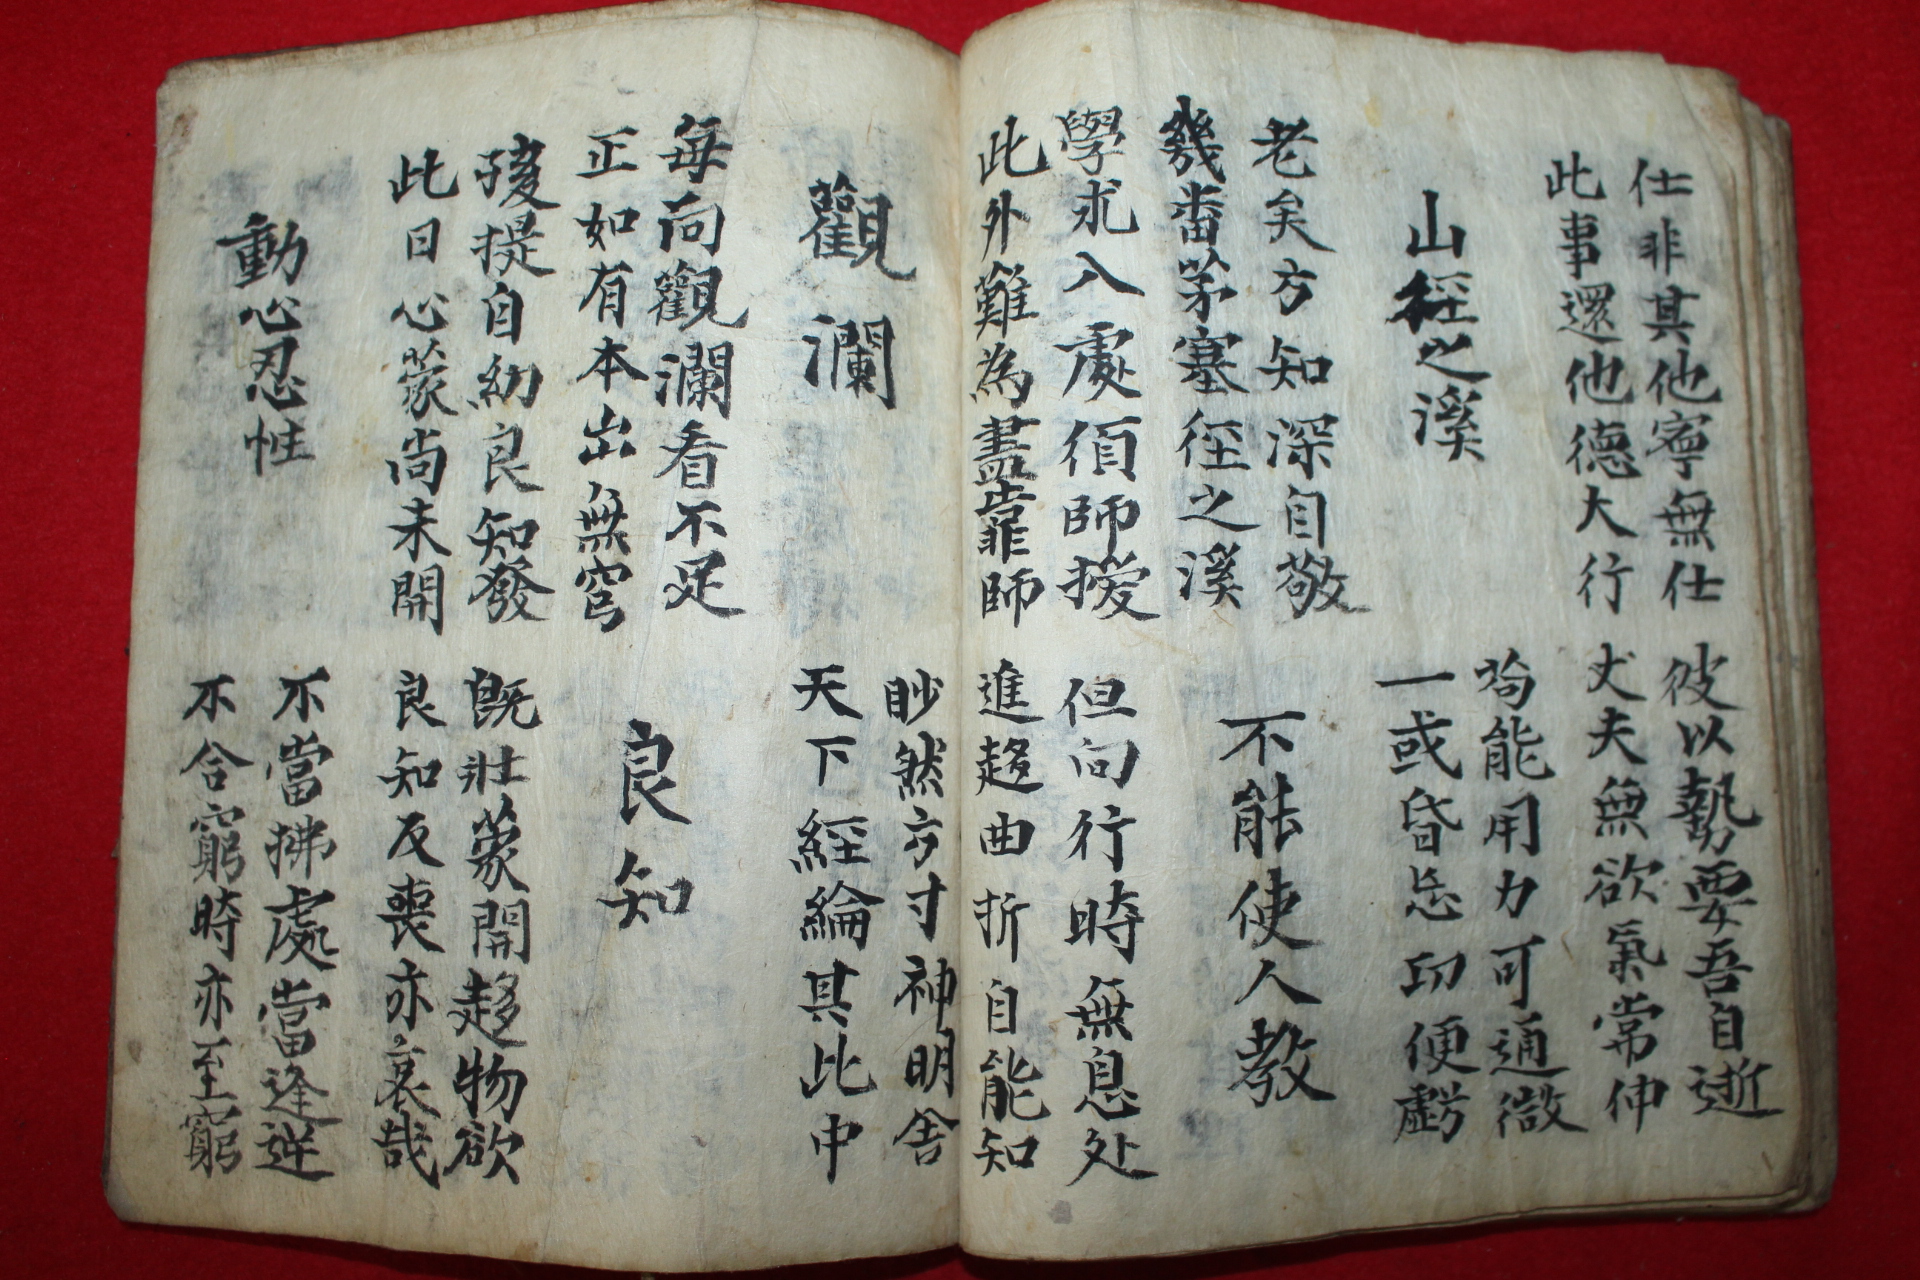 仕非其他寧無仕
此事還他德大行
彼以勢要吾自逝
丈夫無欲氣常伸
山徑之溪
老矣方知深自敬
幾番茅塞徑之溪
能用力可通微
一或昏忘功便虧
不能使人教
學求入處須師授
此外難為盡靠師
但向行時無息処
進趍曲折自能知
觀瀾
每向觀瀾看不足
正如有本出無窮
眇然方寸神明舍
天下經綸其此中
良知
孩提自幼良知發
此日心蒙尚未開
既壯蒙開趍物欲
良知反喪亦哀哉
動心忍性
不當拂處當逢逆
不合窮時亦至窮